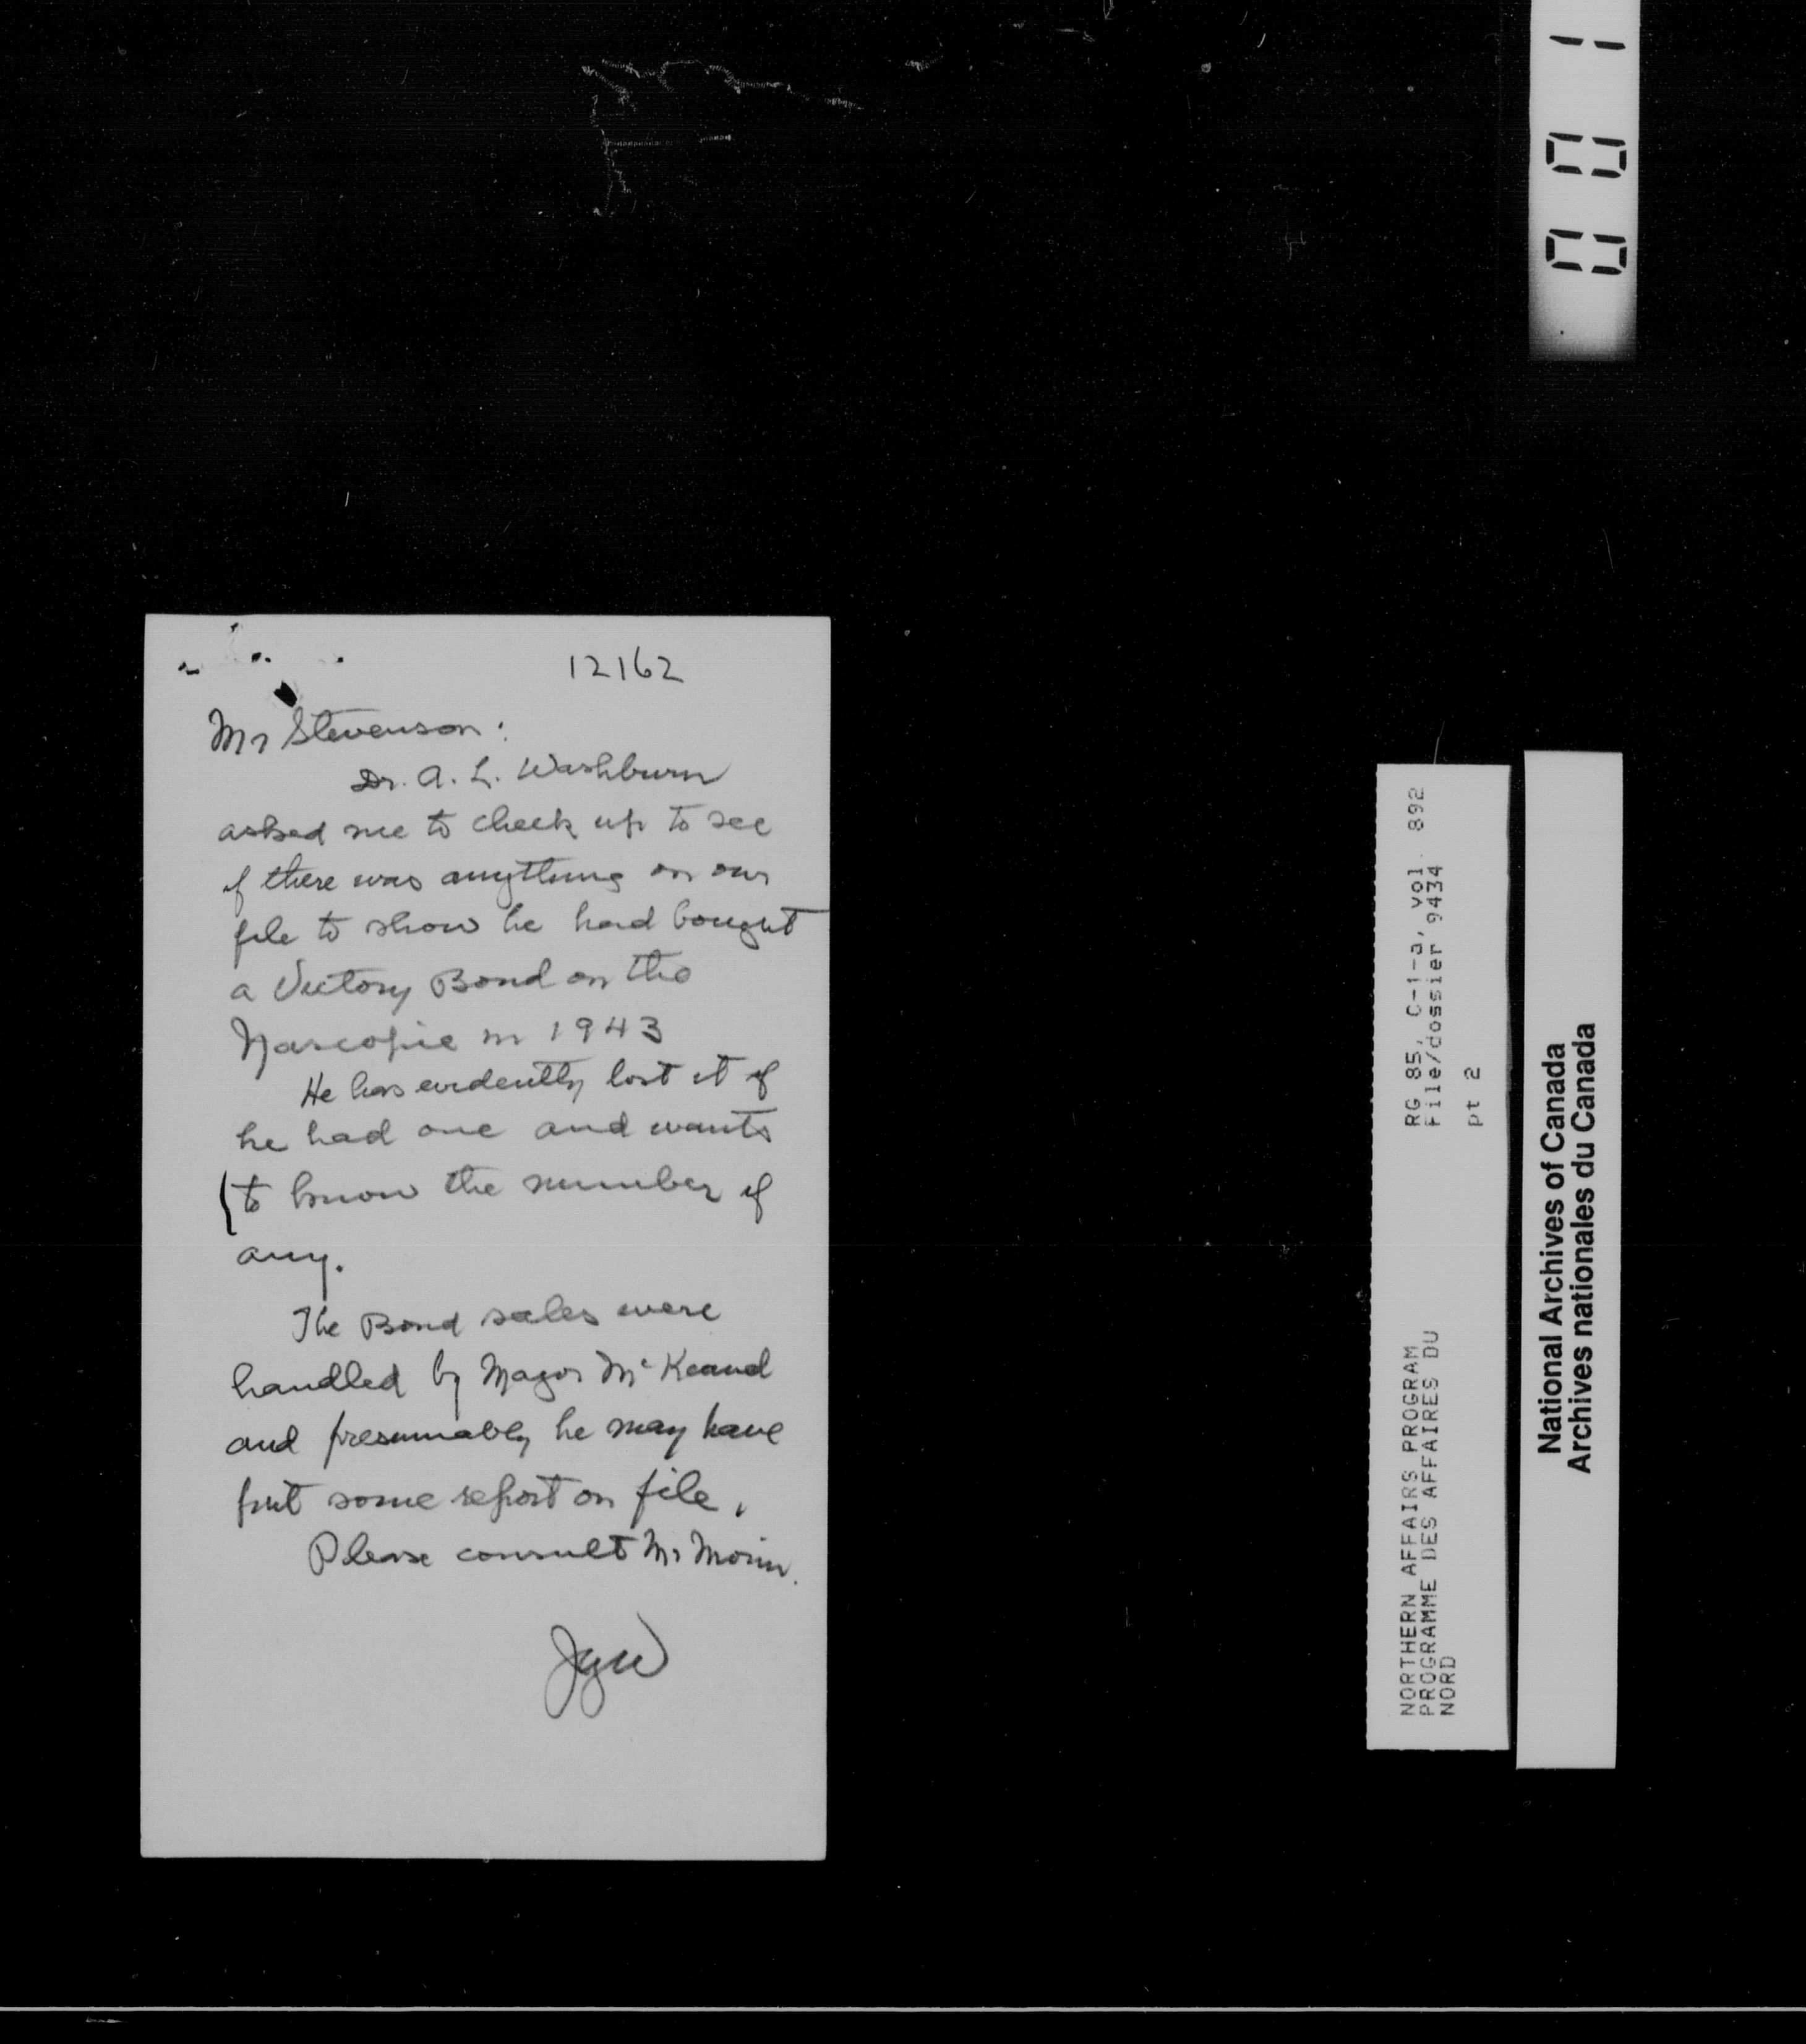 001
12162
Mr Stevenson:
Dr. A. L. Washburn
asked me to check up to see
if there was anything on our
file to show he had bought
a Victory Bond on the
Nascopie in 1943
He has evidently lost it if
he had one and wants
to know the number if
any.
The Bond sales were
handled by Major McKeand
and presumably he may have
put some report on file.
Please consult Mr Morin.
JGW
RG 85, C-1-a, vol. 892
File/dossier 9434
pt 2
NORTHERN AFFAIRS PROGRAM
PROGRAMME DES AFFAIRES DU
NORD
National Archives of Canada
Archives nationales du Canada